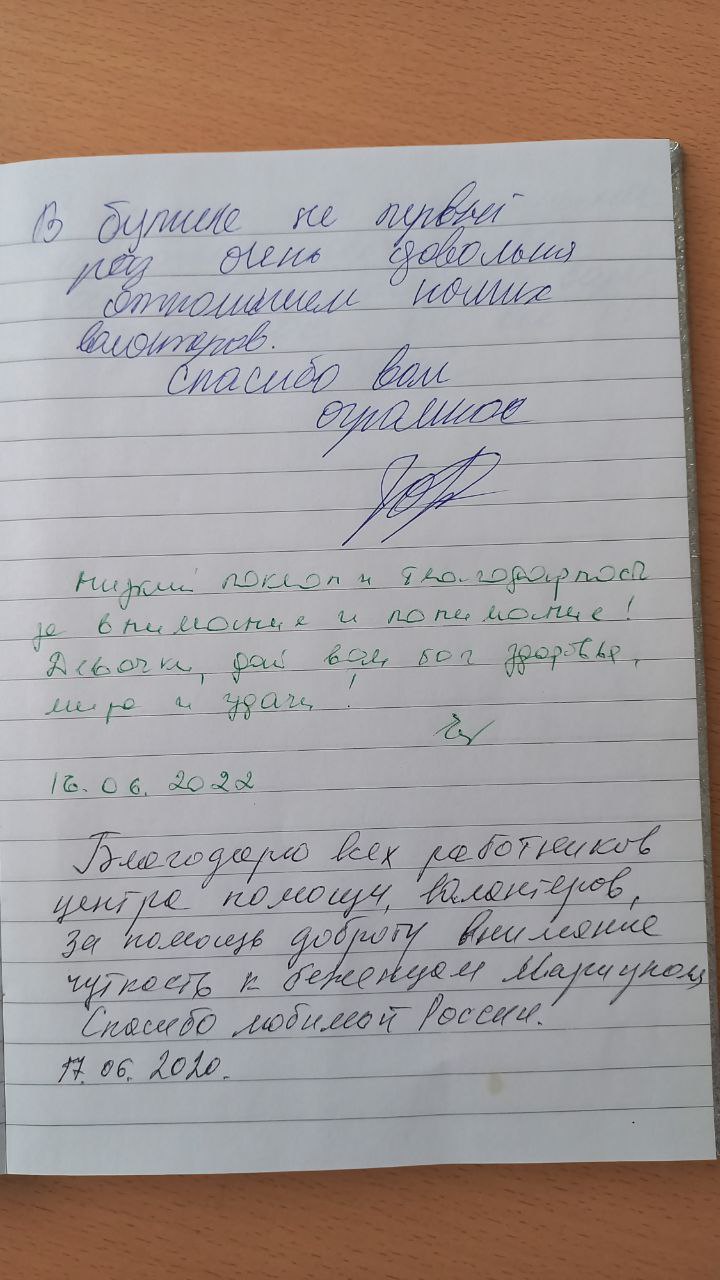 В бутике не первый
раз очень довольна
отношением
волонтеров.
Спасибо вам
огромное
Низкий поклон и благодарность
за внимание и понимание!
Девочки, дай вам бог здоровья,
мира и удачи!
16.06.2022
Благодарю всех работников
центра помощи, валантеров,
за помощь доброту внимание
чуткость к беженцам Мариуполя
Спасибо любимой России.
17.06.2020.